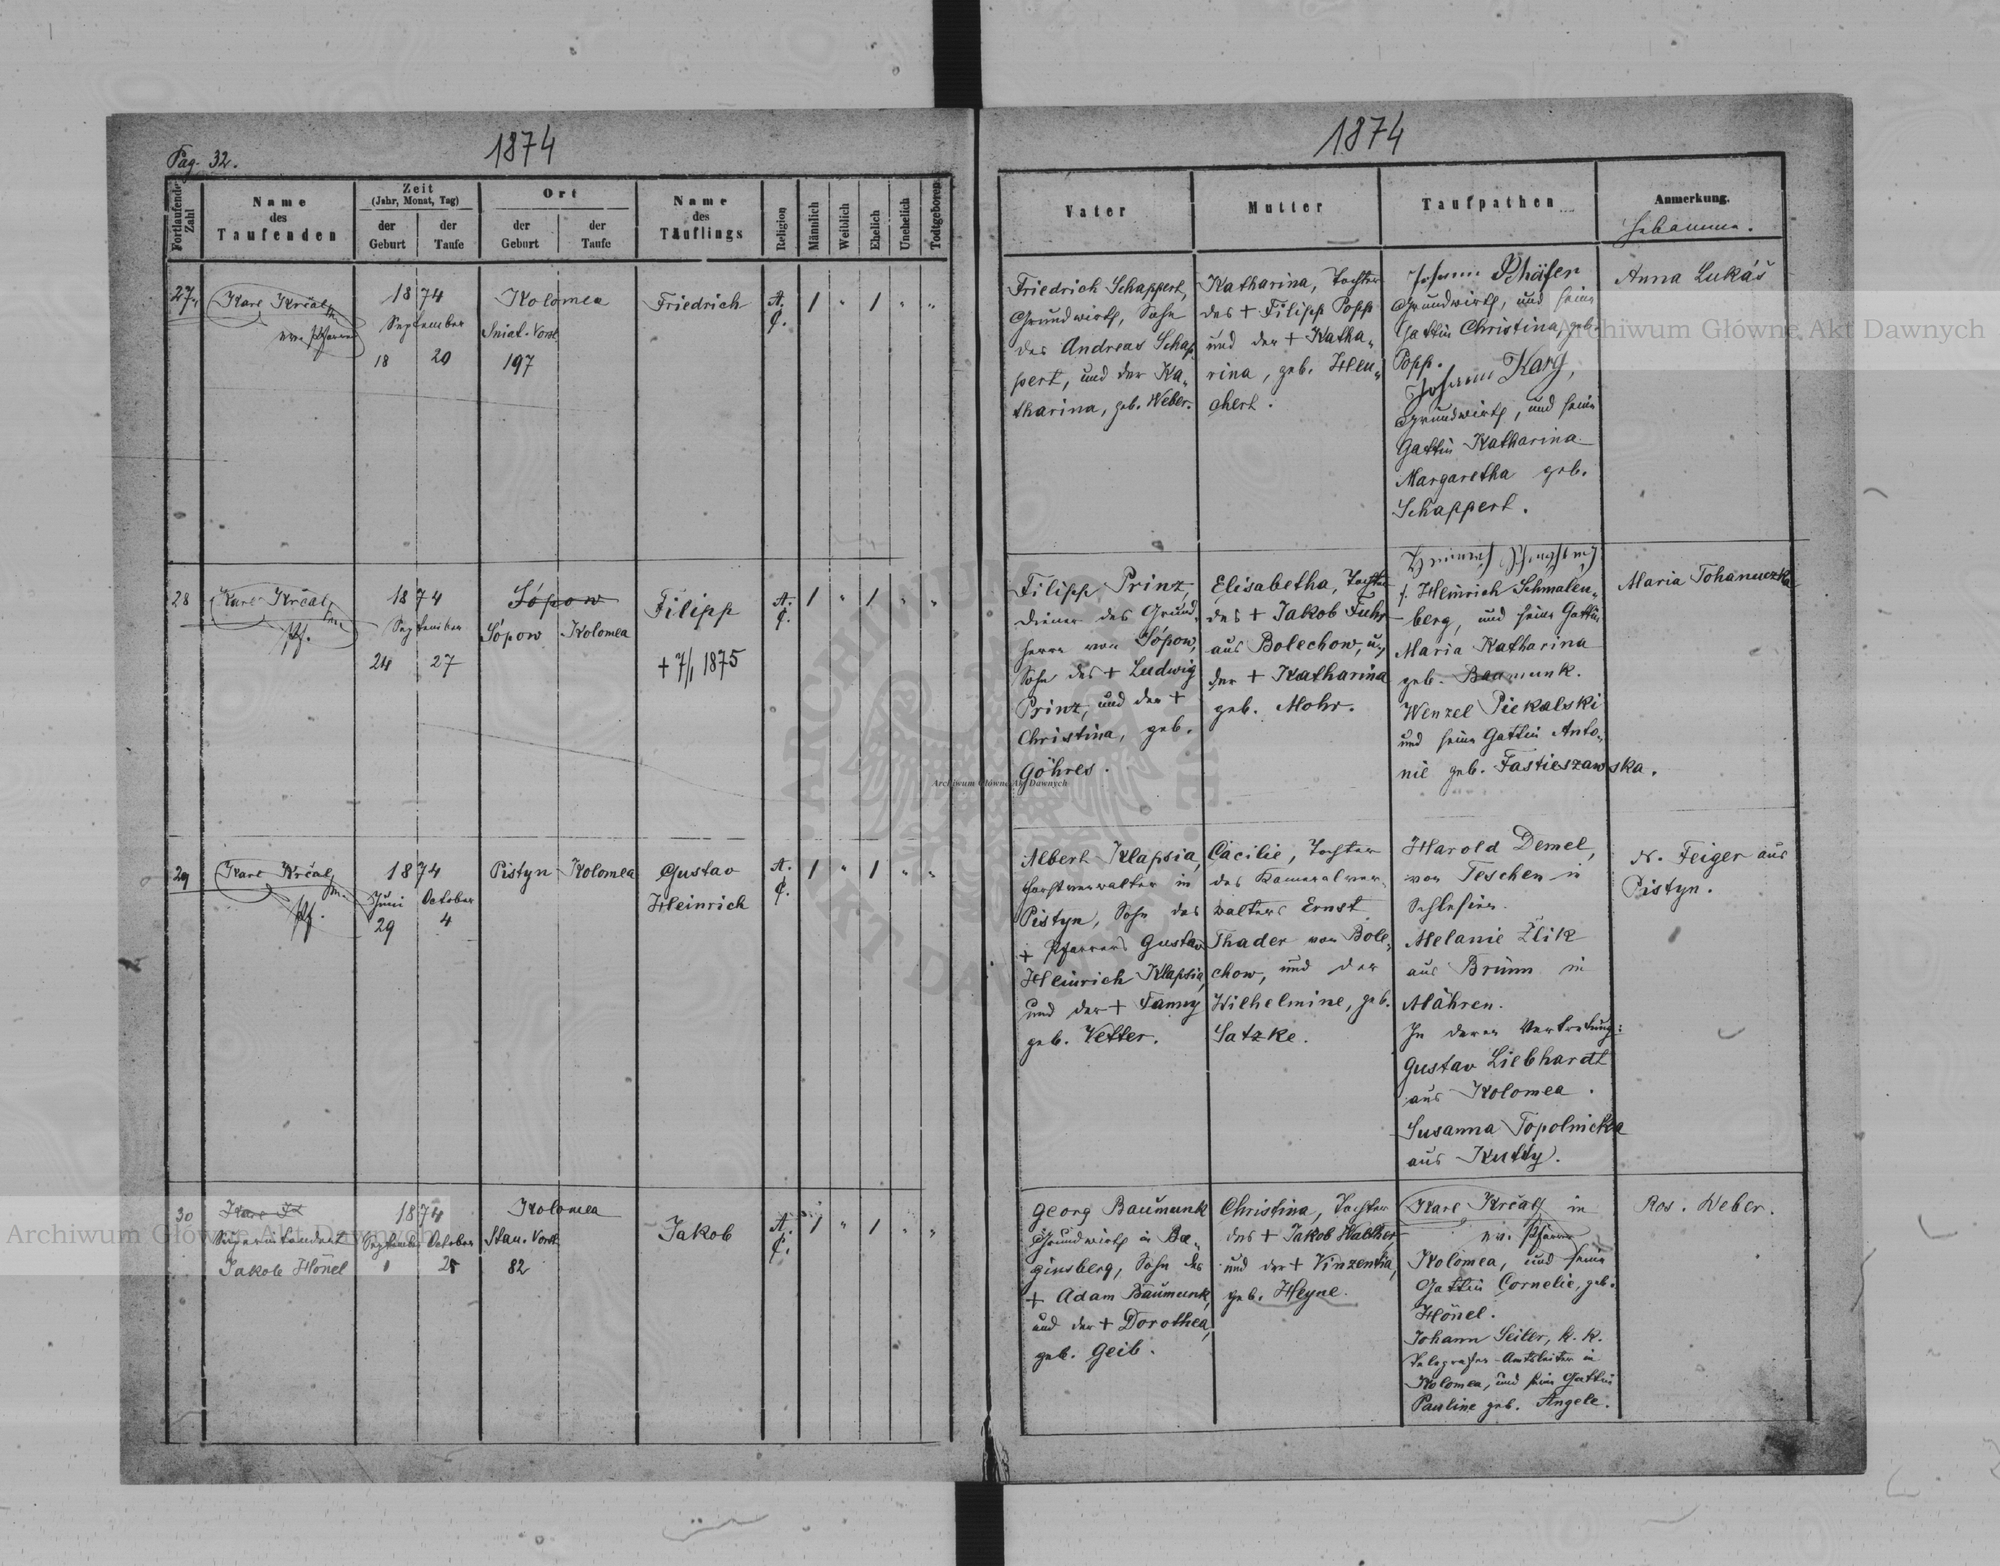 Pag. 32.
1874
1874
Fortlaufende Zahl
Name
des
Taufenden
Zeit
(Jahr, Monat, Tag)
der
Geburt
der
Taufe
Ort
der
Geburt
der
Taufe
Name
des
Täuflings
Religion
Männlich
Weiblich
Ehelich
Unehelich
Todtgeboren
Vater
Mutter
Taufpathen
Anmerkung.
Hebamme.
27
Karl Krčal
ev. Pfarrer
1874
September
18 20
Kolomea
Sniat. Vorst
197
Friedrich
A.
C.
1 " 1 " "
Friedrich Schappert,
Grundwirth, Sohn
des Andreas Schap
pert, und der Ka-
tharina, geb. Weber.
Katharina, Tochter
des + Filipp Popp
und der + Katha-
rina, geb. Heu-
chert.
Johann Schäfer
Grundwirth, und seine
Gattin Christina, geb.
Popp.
Johann Karg,
Grundwirth, und seine
Gattin Katharina
Margaretha geb.
Schappert.
Anna Lukáš
28
Karl Krčal
Pf.
1874
September
24 27
Sópow
Sópow Kolomea
Filipp
+ 7/1 1875
A.
C.
1 " 1 " "
Filipp Prinz,
Diener des Grund-
herrn von Sópow,
Sohn des + Ludwig
Prinz, und der +
Christina, geb.
Göhres.
Elisabetha, Tochter
des + Jakob Fuhr
aus Bolechow, u
der + Katharina
geb. Mohr.
Heinrich
f. Heinrich Schmalen-
berg, und seine Gattin
Maria Katharina
geb. Baumunk.
Wenzel Piekalski
und seine Gattin Anto-
nie geb. Fastieszawska.
Maria Tohanuczka
29
Karl Krčal
Pf.
1874
Juni October
29 4
Pistyn Kolomea
Gustav
Heinrich
A.
C.
1 " 1 " "
Albert Klapsia,
Forstverwalter in
Pistyn, Sohn des
+ Pfarrers Gustav
Heinrich Klapsia,
und der + Fanny
geb. Vetter.
Cäcilie, Tochter
des Kameralver-
walters Ernst
Thader von Bole-
chow, und der
Wilhelmine, geb.
Satzke.
Harold Demel,
von Teschen in
Schlesien.
Melanie Žlik
aus Brünn in
Mähren.
In deren Vertretung:
Gustav Liebhardt
aus Kolomea.
Susanna Topolnicka
aus Kutty.
N. Feiger aus
Pistyn.
30
Karl
Superintendent
Jakob Hönel
1874
September October
1 25
Kolomea
Stan. Vorst
82
Jakob
A.
C.
1 " 1 " "
Georg Baumunk
Grundwirth in Ba-
ginsberg, Sohn des
+ Adam Baumunk,
und der + Dorothea,
geb. Geib.
Christina, Tochter
des + Jakob Walther
und der + Vinzentia,
geb. Heyne.
Karl Krčal in
ev. Pfarrer
Kolomea, und seine
Gattin Cornelie, geb.
Hönel.
Johann Seiler, k. k.
Telegrafen-Amtsleiter in
Kolomea, und seine Gattin
Pauline geb. Angele.
Ros. Weber.
Archiwum Główne Akt Dawnych
Archiwum Główne Akt Dawnych
Archiwum Główne Akt Dawnych
ARCHIWUM GŁÓWNE AKT DAWNYCH